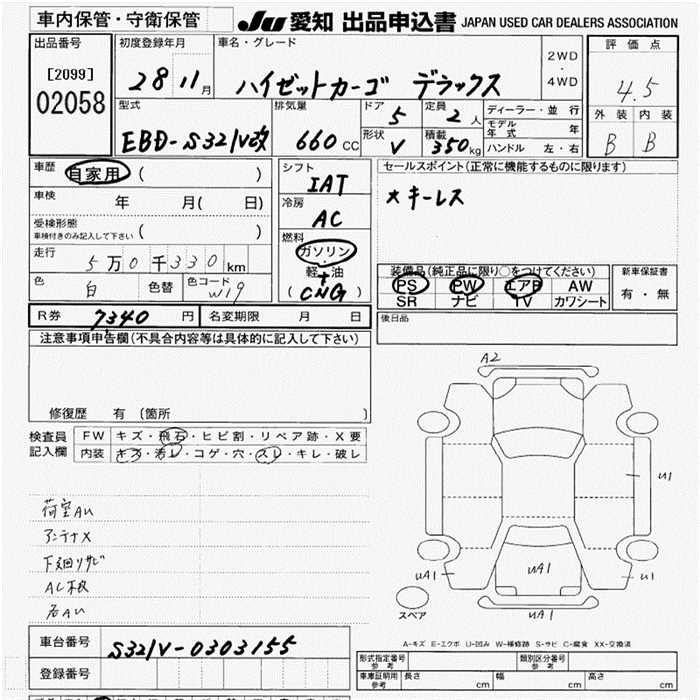 車内保管・守衛保管
JU 愛知 出品申込書 JAPAN USED CAR DEALERS ASSOCIATION
出品番号
[2099]
02058
初度登録年月
28 11月
車名・グレード
ハイゼットカーゴ デラックス
2WD
・
4WD
評価点
4.5
外装 内装
B B
型式
EBD-S321V改
排気量
660 CC
ドア
5
定員
2人
形状
V
積載
350kg
ディーラー・並行
モデル年式 年
ハンドル 左・右
車歴 自家用 ( )
車検 年 月( 日)
受検形態
車検付きのみ記入して下さい ( )
走行
5万0千330km
色 白 色替 色コード W19
シフト
IAT
冷房
AC
燃料
ガソリン
軽・油
(CNG)
セールスポイント(正常に機能するものに限ります)
*キーレス
装備品(純正品に限り○をつけてください)
PS PW エアB AW
SR ナビ TV カワシート
新車保証書
有・無
後日品
R券 7340円 名変期限 月 日
注意事項申告欄(不具合内容等は具体的に記入して下さい)
修復歴 有 (箇所 )
検査員記入欄
FW キズ・飛石・ヒビ割・リペア跡・X要
内装 キズ・汚レ・コゲ・穴・スレ・キレ・破レ
荷室AU
アンテナX
下廻リサビ
A2
U1
UA1
UA1
U1
UA1
スペア
A-キズ E-エクボ U-凹み W-補修跡 S-サビ C-腐食 XX-交換済
車台番号 S321V-0303155
登録番号
形式指定番号 参考
類別区分番号 参考
車庫証明用 参考 長さ cm 幅 cm 高さ cm